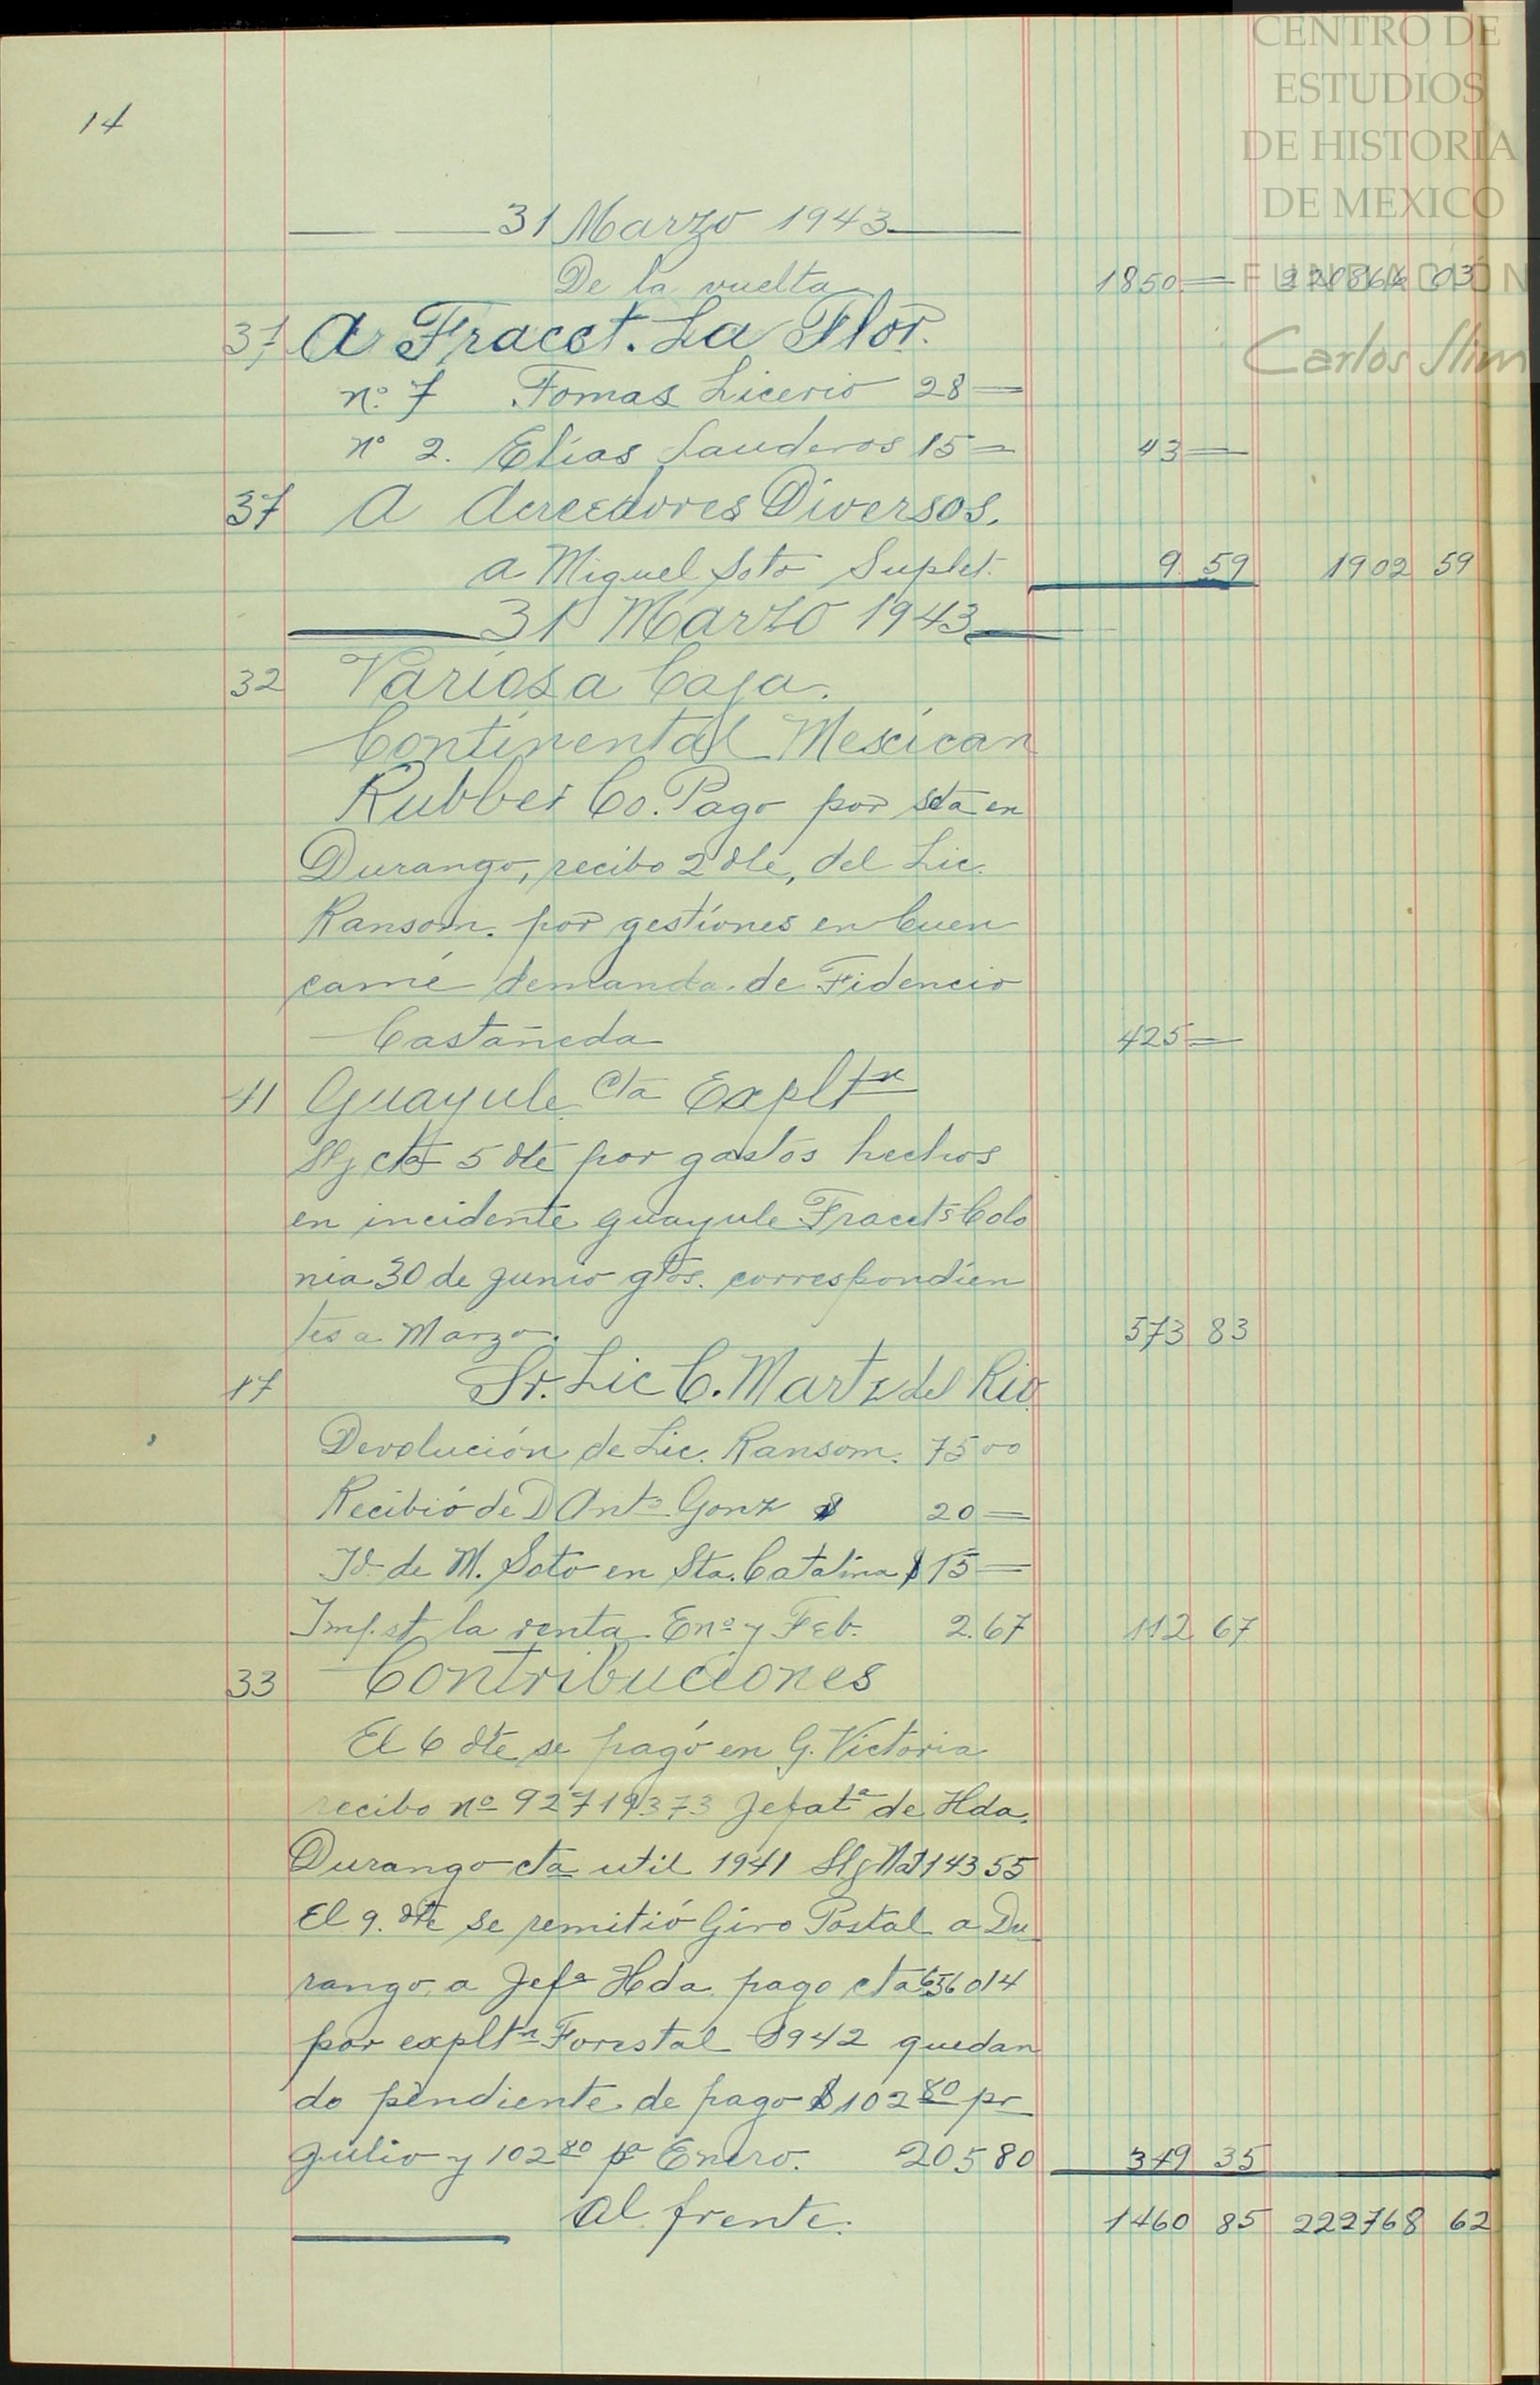 CENTRO DE
ESTUDIOS
DE HISTORIA
DE MEXICO
FUNDACIÓN
Carlos Slim
14
31 Marzo 1943
De la vuelta 1850 = 220866 03
37 A Fracct. La Flor.
nº 7 Tomas Licerio 28 =
nº 2. Elías Landeros 15 = 43 =
37 A Acreedores Diversos.
a Miguel Soto Suplet. 9 59 1902 59
31 Marzo 1943
32 Varios a Caja.
Continental Mexican
Rubber Co. Pago por scta en
Durango, recibo 2 dte, del Lic.
Ransom. por gestiones en Cuen
camé demanda de Fidencio
Castañeda 425 =
41 Guayule Cta Expltn
S/g cta 5 dte por gastos hechos
en incidente guayule Fraccts Colo
nia 30 de Junio gtos. correspondien
tes a Marzo. 573 83
17 Sr. Lic C. Martz del Rio
Devolución de Lic. Ransom. 75 00
Recibió de D Anto Gonz $ 20 =
Id de M. Soto en Sta. Catalina $ 15 =
Impst la renta Enº y Feb. 2.67 112 67
33 Contribuciones
El 6 dte se pagó en G. Victoria
recibo nº 92719373 Jefatª de Hda.
Durango cta util 1941 S/g Not 143 55
El 9. dte se remitió Giro Postal a Du
rango, a Jefª Hda. pago cta 656014
por expltn Forestal 1942 quedan
do pendiente de pago $ 102 80 pr
Julio y 102 80 pª Enero. 205 80 349 35
Al frente. 1460 85 222768 62